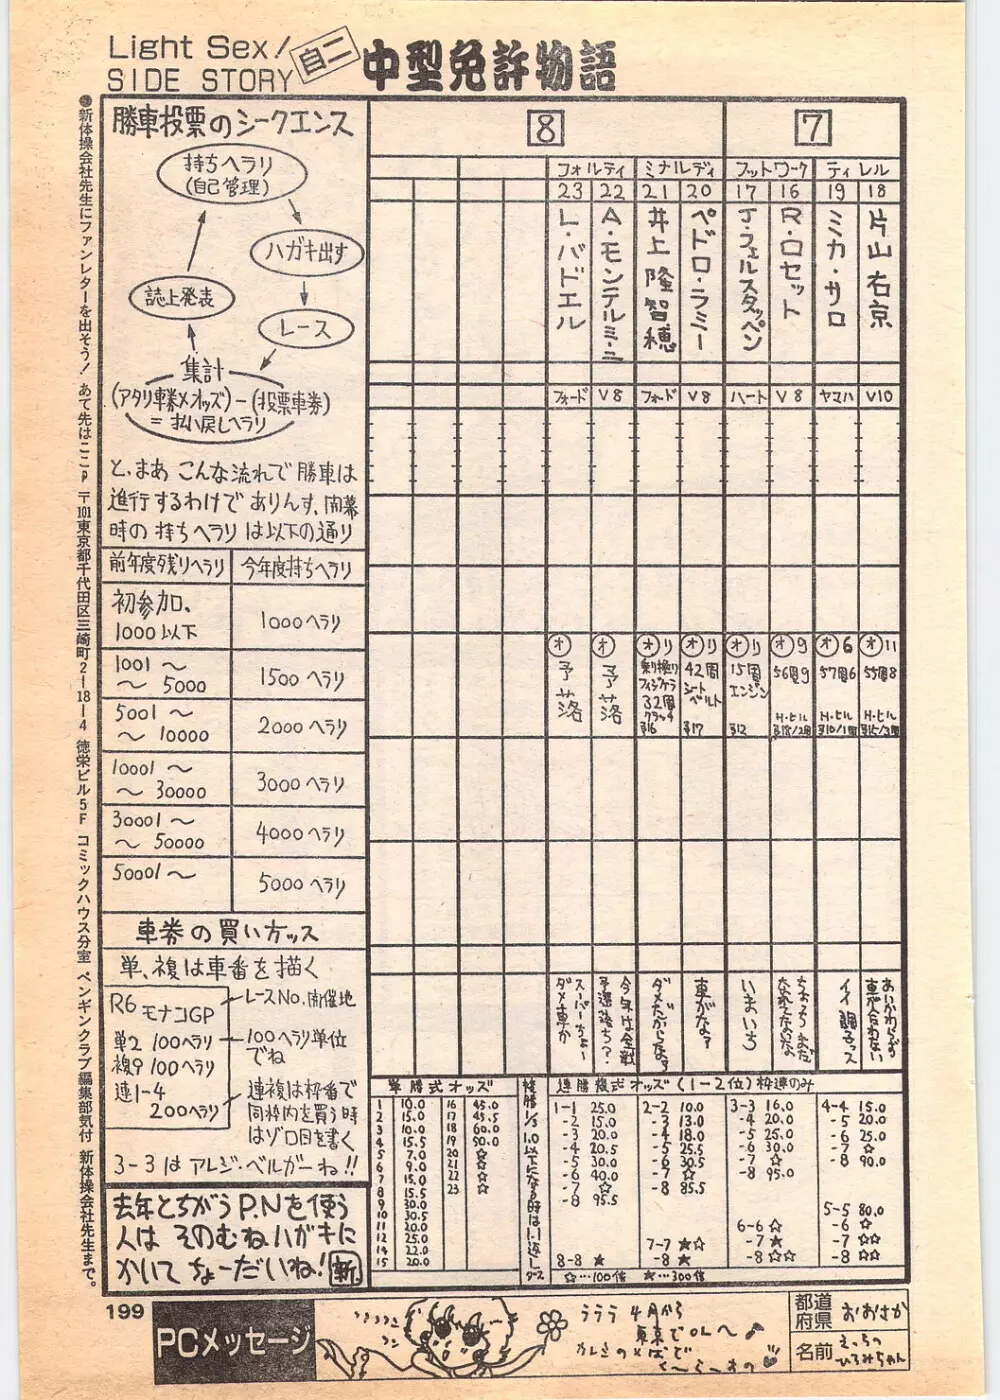 Light Sex!
SIDE STORY
自二
中型免許物語
勝車投票のシークエンス
持ちヘラリ
(自己管理)
ハガキ出す
レース
集計
(アタリ車券×オッズ)−(投票車券)
＝払い戻しヘラリ
誌上発表
と、まあ こんな流れで 勝車は
進行するわけで ありんす、開幕
時の 持ちヘラリ は以下の通り
前年度残りヘラリ 今年度持ちヘラリ
初参加、
1000以下 1000ヘラリ
1001〜
〜5000 1500ヘラリ
5001〜
〜10000 2000ヘラリ
10001〜
〜30000 3000ヘラリ
30001〜
〜50000 4000ヘラリ
50001〜 5000ヘラリ
車券の買い方ッス
単、複は車番を描く
R6 モナコGP
レースNo.開催地
単2 100ヘラリ
複9 100ヘラリ
連1-4
200ヘラリ
100ヘラリ単位
でね
連複は枠番で
同枠内を買う時
はゾロ目を書く
3-3はアレジ・ベルガーね!!
去年とちがうP.Nを使う
人は そのむねハガキに
かいて ちょーだいね! 新.
8 7
フォルティ ミナルディ フットワーク ティレル
23 22 21 20 17 16 19 18
L・バドエル
A・モンテルミーニ
井上隆智穂
ペドロ・ラミー
J・フェルスタッペン
R・ロセット
ミカ・サロ
片山右京
フォード V8 フォード V8 ハート V8 ヤマハ V10
オ 予落
オ 予落
オ リ
32周
クラッチ
予16
オ リ
42周
シート
ベルト
予17
オ リ
15周
エンジン
予12
オ 9
56周9
H・ヒル
オ 6
57周6
H・ヒル
予10/1周
オ 11
55周8
H・ヒル
予15/3周
スーパーちょーダメ車か
今年は全戦予選落ち?
ダメだからな?
車がなぁ?
いまいち
イイ調子ッス
あいかわらず車が合わない
単勝式オッズ
1 10.0
2 15.0
3 10.0
4 15.5
5 7.0
6 9.0
7 10.0
8 15.5
9 30.0
10 30.5
11 20.0
12 25.0
14 22.0
15 20.0
16 45.0
17 45.5
18 60.0
19 50.0
20 ☆
21 ☆
22 ☆
23 ☆
連勝複式オッズ(1-2位)枠連のみ
1-1 25.0
-2 15.0
-3 20.0
-4 20.5
-5 30.0
-6 40.0
-7 ☆
-8 95.5
2-2 10.0
-3 13.0
-4 18.0
-5 25.5
-6 30.5
-7 ☆
-8 85.5
3-3 16.0
-4 20.0
-5 25.0
-6 30.0
-7 ☆
-8 95.0
4-4 15.0
-5 20.0
-6 25.0
-7 ☆
-8 90.0
5-5 80.0
-6 ☆
-7 ☆☆
-8 ☆☆
6-6 ☆
-7 ★
-8 ☆☆
7-7 ★☆
-8 ★
8-8 ★
☆…100倍 ★…300倍
新体操会社先生にファンレターを出そう! あて先はここ 〒101東京都千代田区三崎町2-18-4 徳栄ビル5F コミックハウス分室 ペンギンクラブ編集部気付 新体操会社先生まで。
199
PCメッセージ
ううう 4月から
東京でOL〜♪
かれきのそばで
く〜ら〜すの
都道府県 おおさか
名前 えっちの
ひろみちゃん